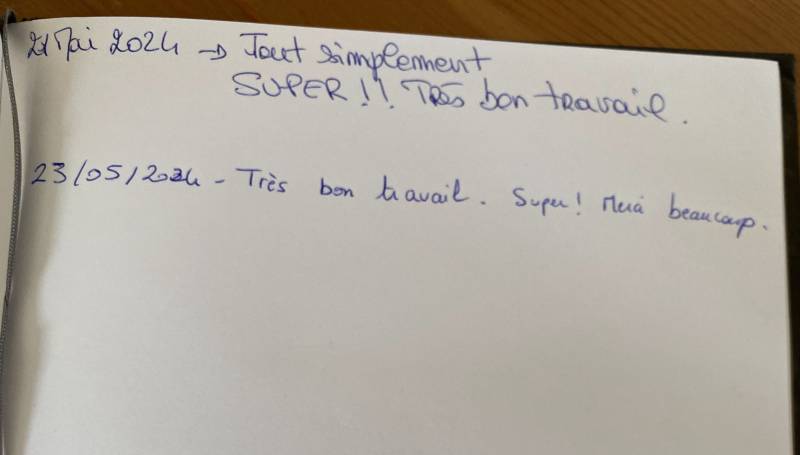 21 Mai 2024 → Tout simplement
SUPER!! Très bon travail.
23/05/2024 - Très bon travail. Super! Merci beaucoup.